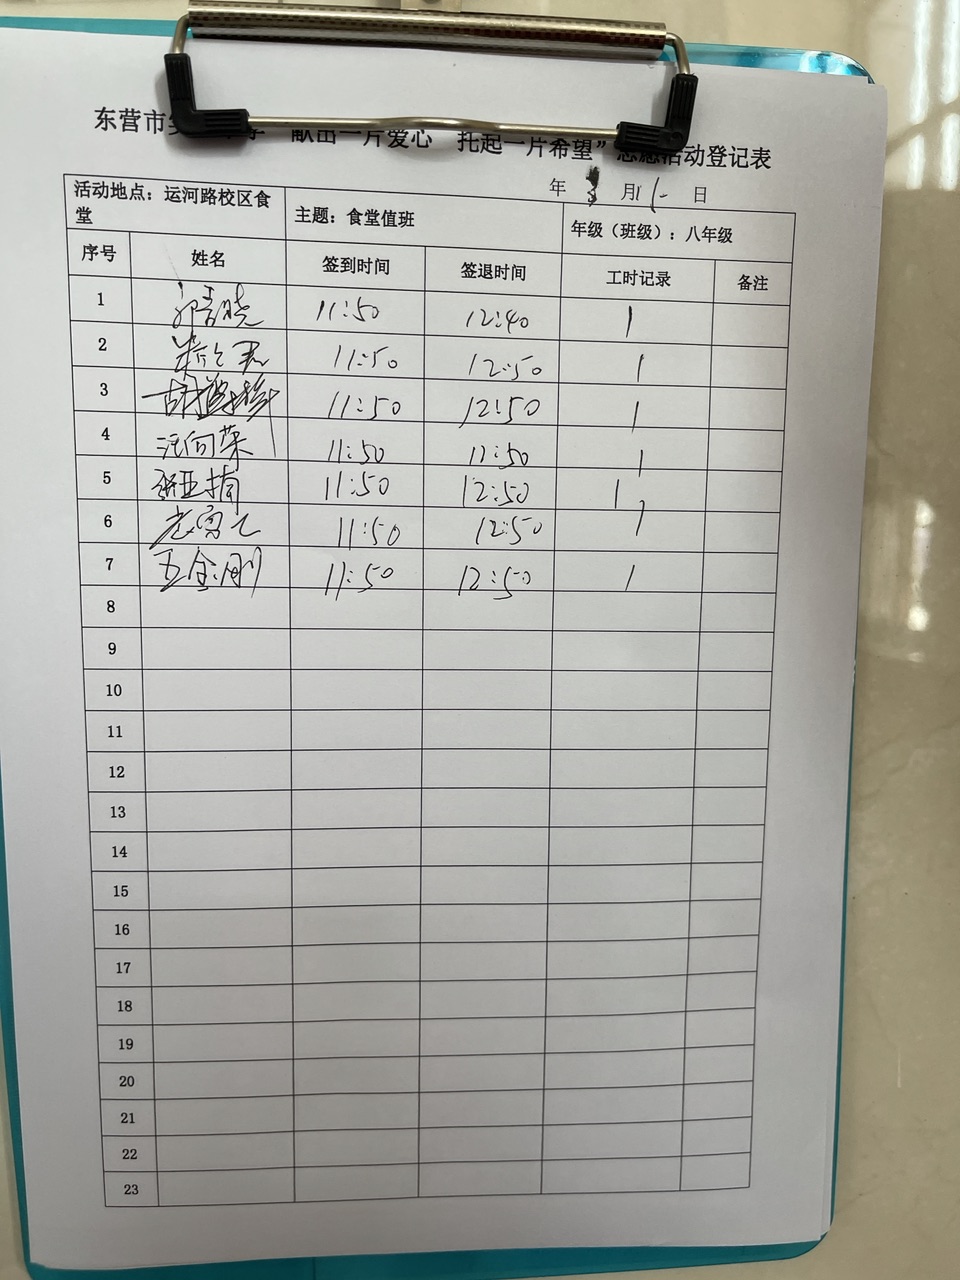 东营市 献出一片爱心 托起一片希望”志愿活动登记表
年 3 月 日
活动地点：运河路校区食堂 主题：食堂值班 年级（班级）：八年级
序号 姓名 签到时间 签退时间 工时记录 备注
1 11:50 12:40 1
2 11:50 12:50 1
3 11:50 12:50 1
4 汪向荣 11:50 11:50 1
5 张亚楠 11:50 12:50 1
6 11:50 12:50 1
7 王金刚 11:50 12:50 1
8
9
10
11
12
13
14
15
16
17
18
19
20
21
22
23